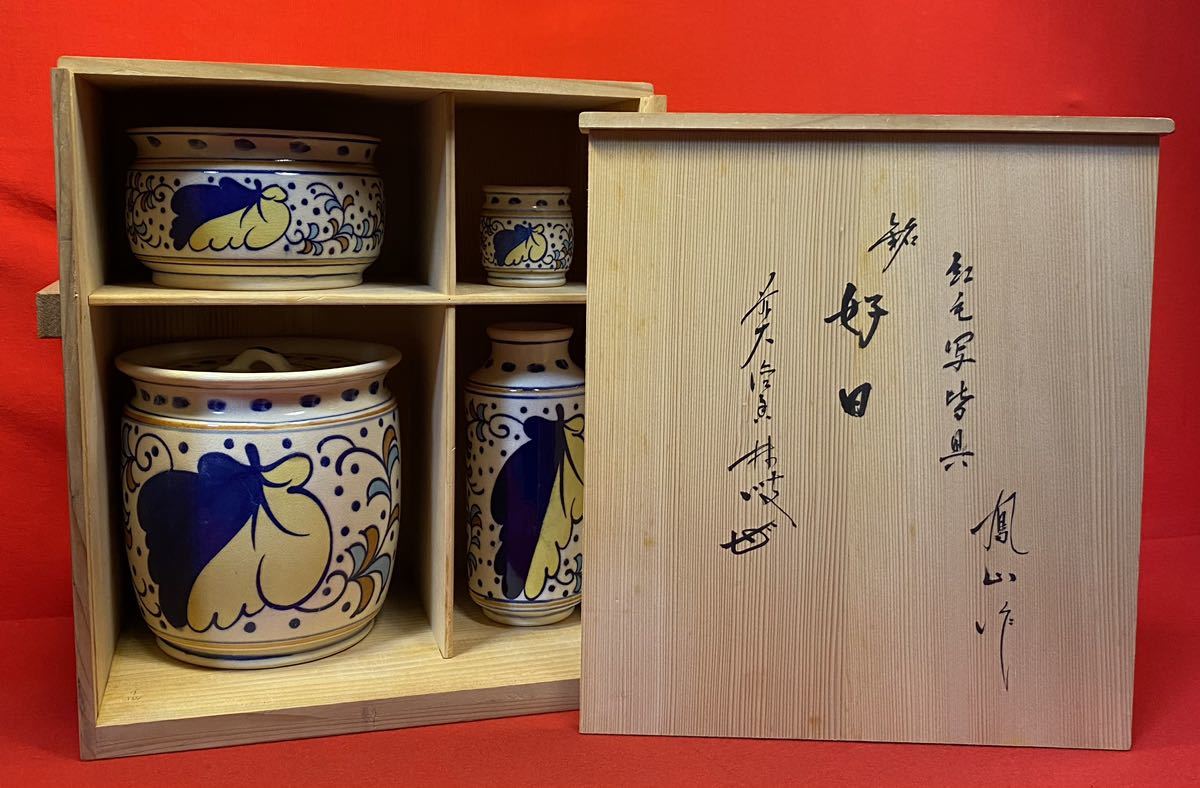 紅毛写皆具
鳳山作
銘
好日
前大徳